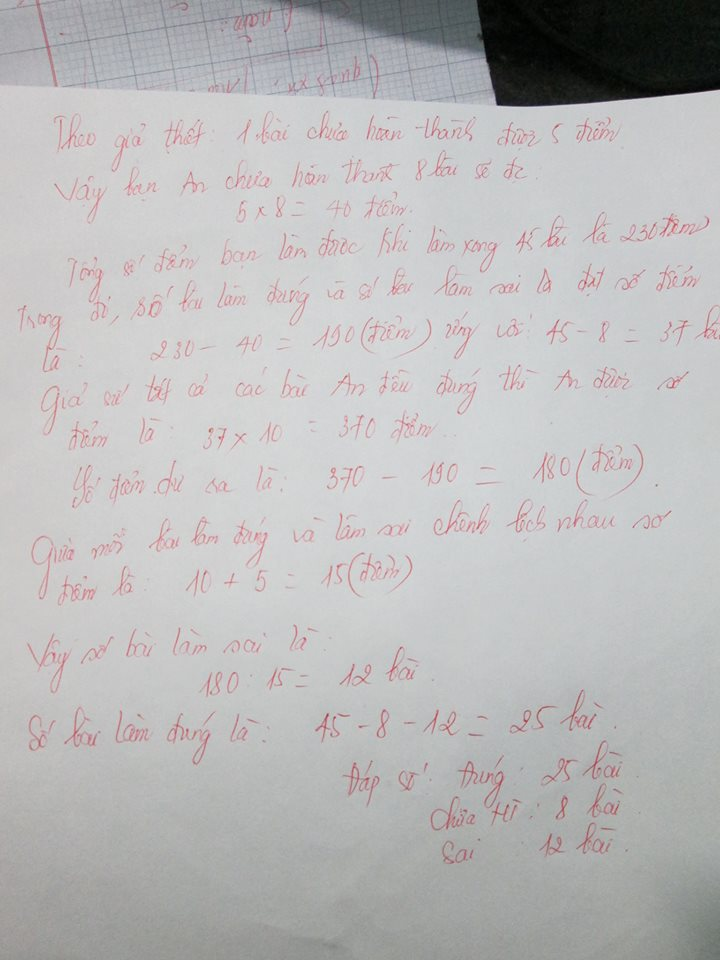 Theo giả thiết: 1 bài chưa hoàn thành được 5 điểm
Vậy bạn An chưa hoàn thành 8 bài sẽ đc:
5 x 8 = 40 điểm.
Tổng số điểm bạn làm được khi làm xong 45 bài là 230 điểm
Trong đó, số bài làm đúng và số bài làm sai là đạt số điểm
là: 230 - 40 = 190 (điểm) ứng với: 45 - 8 = 37 bài
Giả sử tất cả các bài An đều đúng thì An được số
điểm là: 37 x 10 = 370 điểm.
Số điểm dư ra là: 370 - 190 = 180 (điểm).
Giữa mỗi bài làm đúng và làm sai chênh lệch nhau số
điểm là: 10 + 5 = 15 (điểm)
Vậy số bài làm sai là:
180 : 15 = 12 bài.
Số bài làm đúng là: 45 - 8 - 12 = 25 bài.
Đáp số: Đúng: 25 bài
Chưa HT: 8 bài
Sai : 12 bài.